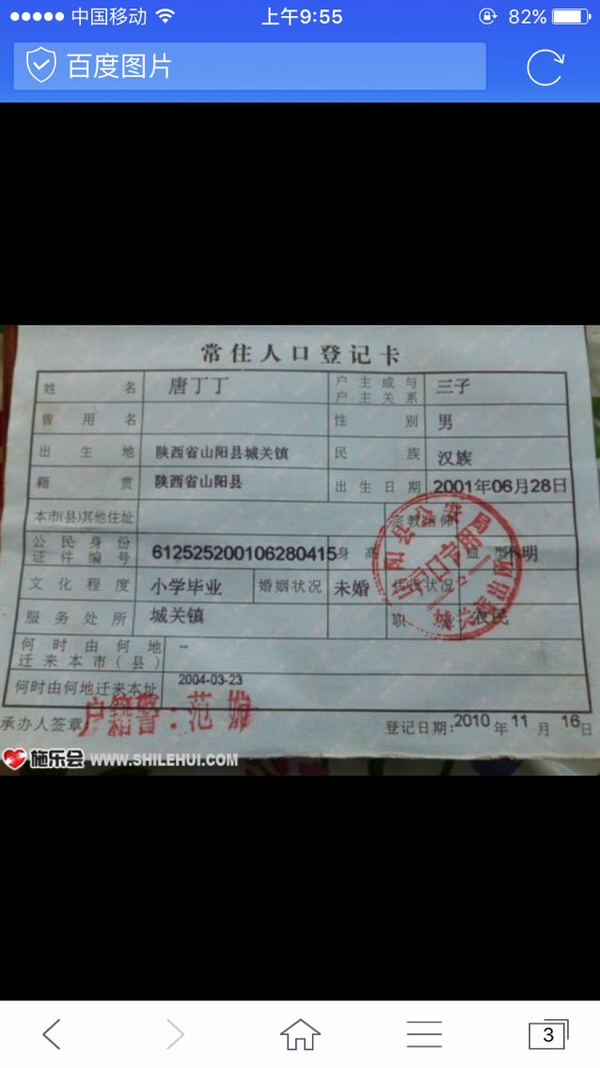 中国移动 上午9:55 82%
百度图片
常住人口登记卡
姓名 唐丁丁 户主或与户主关系 三子
曾用名 性别 男
出生地 陕西省山阳县城关镇 民族 汉族
籍贯 陕西省山阳县 出生日期 2001年06月28日
本市(县)其他住址 宗教信仰
公民身份证件编号 612525200106280415 身高 血型 不明
文化程度 小学毕业 婚姻状况 未婚 兵役状况
服务处所 城关镇 职业 农民
何时由何地迁来本市(县) --
何时由何地迁来本址 2004-03-23
承办人签章: 户籍警: 范 登记日期: 2010年11月16日
施乐会 WWW.SHILEHUI.COM
3